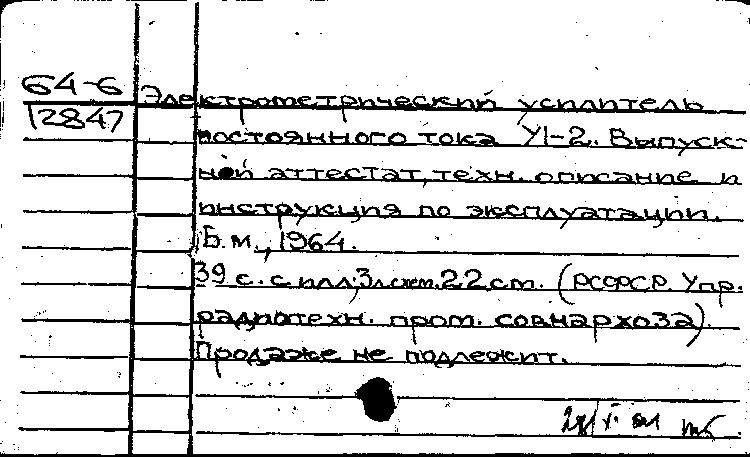 64-6
12847
Электрометрический усилитель
постоянного тока У1-2. Выпуск-
ной аттестат, техн. описание и
инструкция по эксплуатации.
Б.м., 1964.
39 с. с илл; 3 л. схем. 22 см. (РСФСР. Упр.
радиотехн. пром. совнархоза).
Продаже не подлежит.